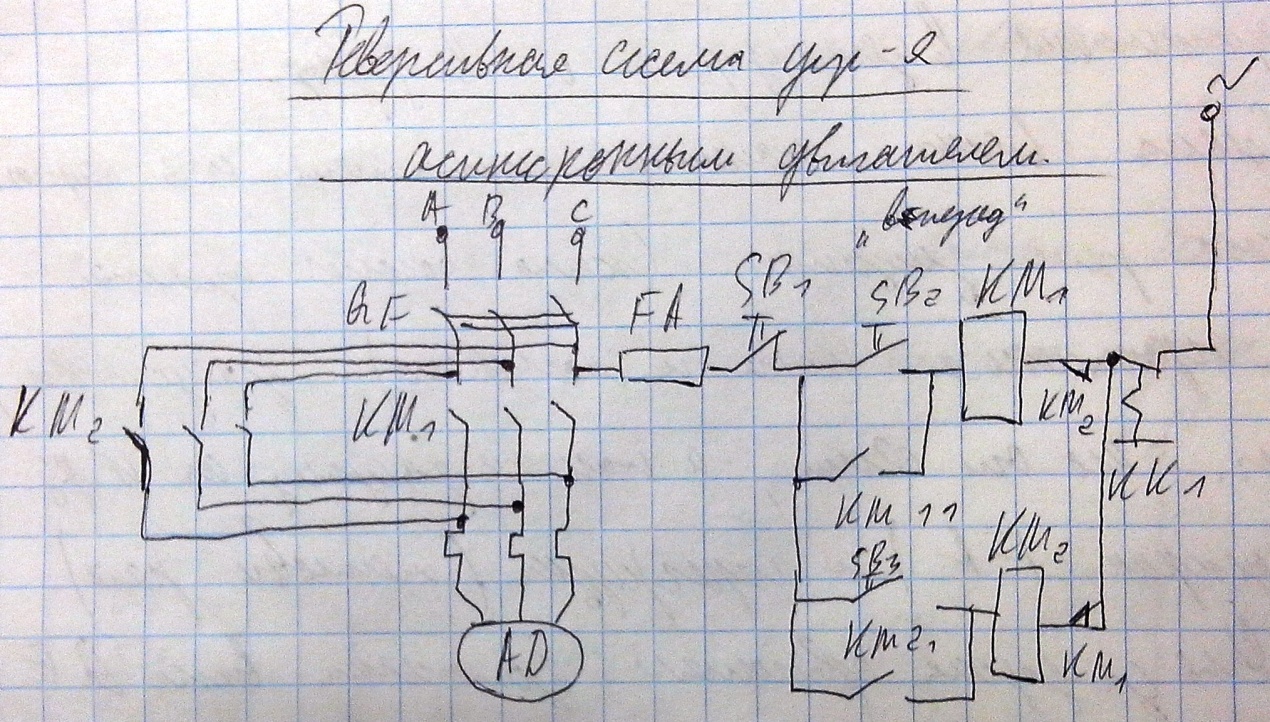 Реверсивная схема упр-я
асинхронным двигателем.
A B C
"вперёд"
QF FA SB1 SB2 KM1
KM2 KM1 KM2
KK1
KM 11
SB3 KM2
KM21
AD KM1
~